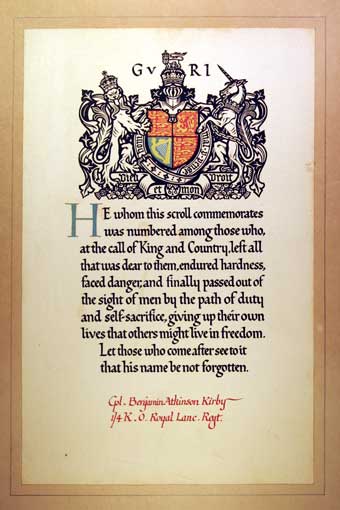 G V R I
HONI SOIT QUI MAL Y PENSE
Dieu et mon Droit
HE whom this scroll commemorates
was numbered among those who,
at the call of King and Country, left all
that was dear to them, endured hardness,
faced danger, and finally passed out of
the sight of men by the path of duty
and self-sacrifice, giving up their own
lives that others might live in freedom.
Let those who come after see to it
that his name be not forgotten.
Cpl. Benjamin Atkinson Kirby
1/4 K. O. Royal Lanc. Regt.